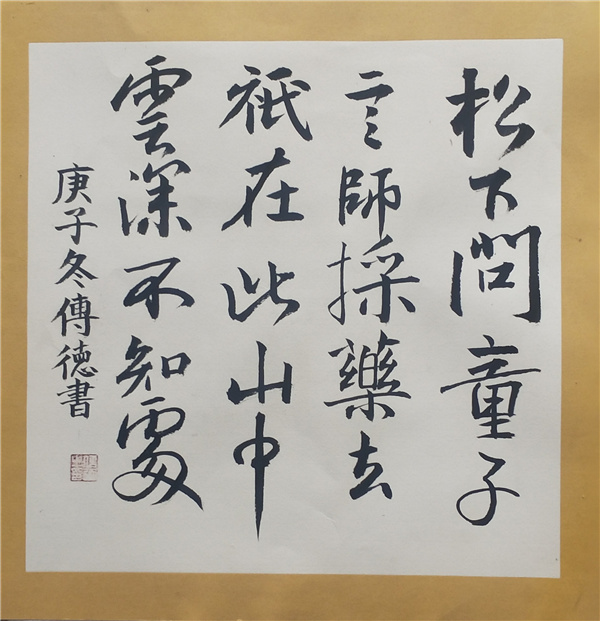 松下問童子
言師採藥去
祇在此山中
雲深不知處
庚子冬傳德書